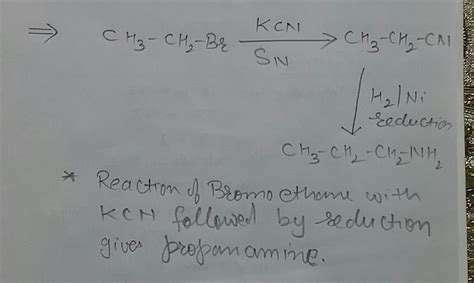 ⇒ CH3-CH2-Br KCN → CH3-CH2-CN
SN
H2/Ni
reduction
CH3-CH2-CH2-NH2
* Reaction of Bromoethane with
KCN followed by reduction
gives propanamine.